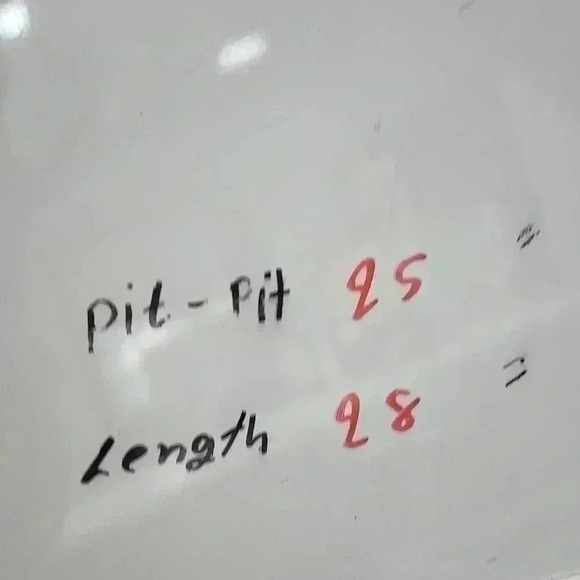 Pit - Pit 25 "
Length 28 "